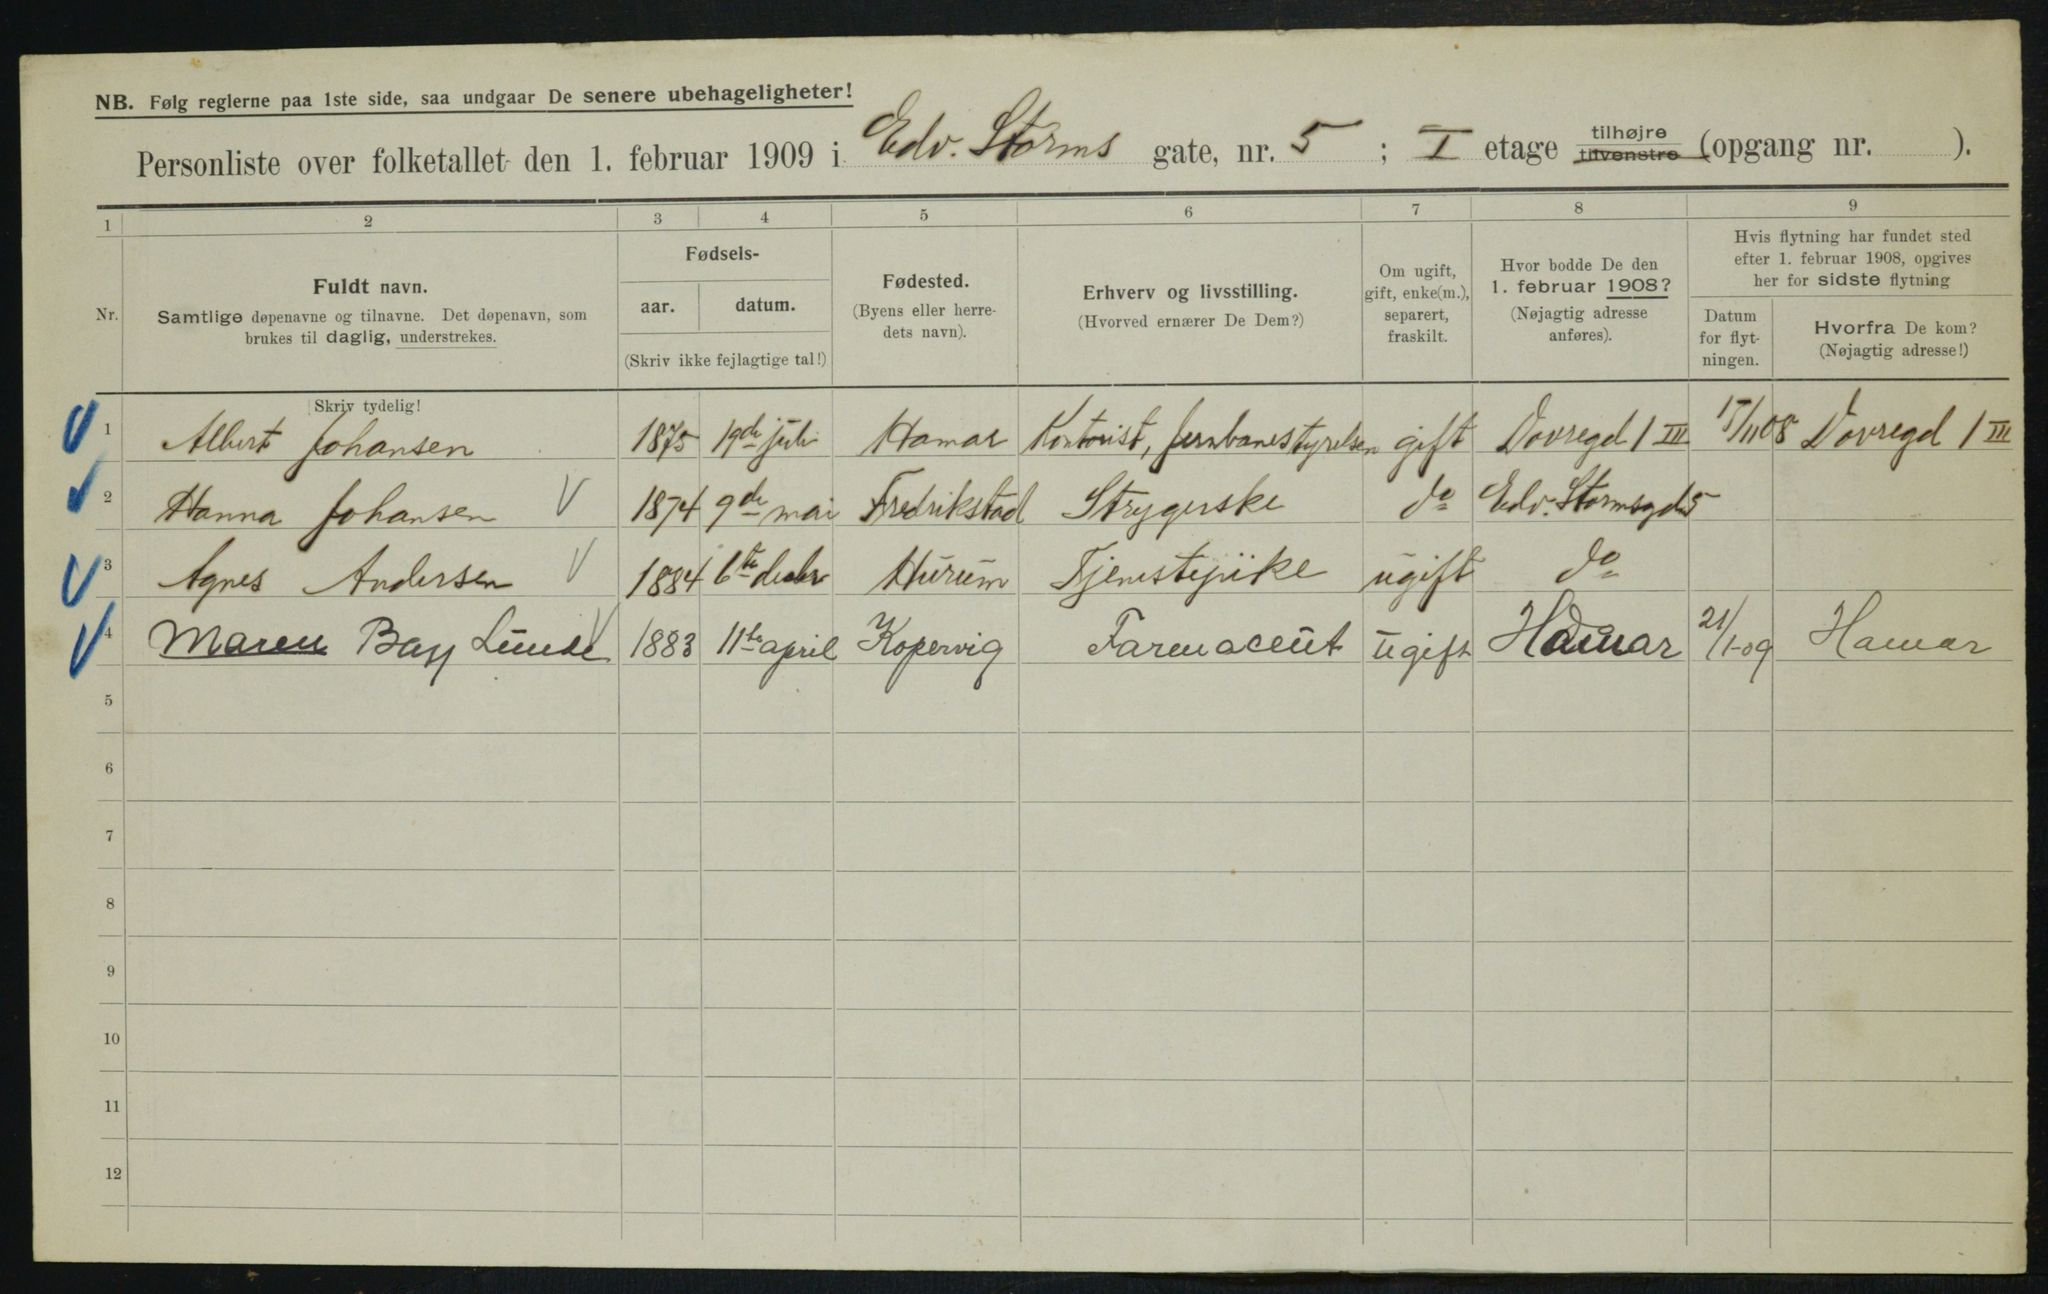 NB. Følg reglerne paa 1ste side, saa undgaar De senere ubehageligheter!
Personliste over folketallet den 1. februar 1909 i Edv. Storms gate, nr. 5 ; I etage tilhøjre tilvenstre (opgang nr. ).
1 2 3 4 5 6 7 8 9
Nr.
Fuldt navn.
Samtlige døpenavne og tilnavne. Det døpenavn, som
brukes til daglig, understrekes.
Skriv tydelig!
Fødsels-
aar. datum.
(Skriv ikke fejlagtige tal!)
Fødested.
(Byens eller herre-
dets navn).
Erhverv og livsstilling.
(Hvorved ernærer De Dem?)
Om ugift,
gift, enke(m.),
separert,
fraskilt.
Hvor bodde De den
1. februar 1908?
(Nøjagtig adresse
anføres).
Hvis flytning har fundet sted
efter 1. februar 1908, opgives
her for sidste flytning
Datum
for flyt-
ningen.
Hvorfra De kom?
(Nøjagtig adresse!)
1 Albert Johansen 1875 19de juli Hamar Kontorist, Jernbanestyrelsen gift Dovregd 1 III 15/11 08 Dovregd 1 III
2 Hanna Johansen 1874 9de mai Fredrikstad Strygerske do Edv. Stormsgd 5
3 Agnes Andersen 1884 6te decbr Hurum Tjenestepike ugift do
4 Maren Bay Lunde 1883 11te april Kopervig Farmaceut ugift Hamar 21/1-09 Hamar
5
6
7
8
9
10
11
12